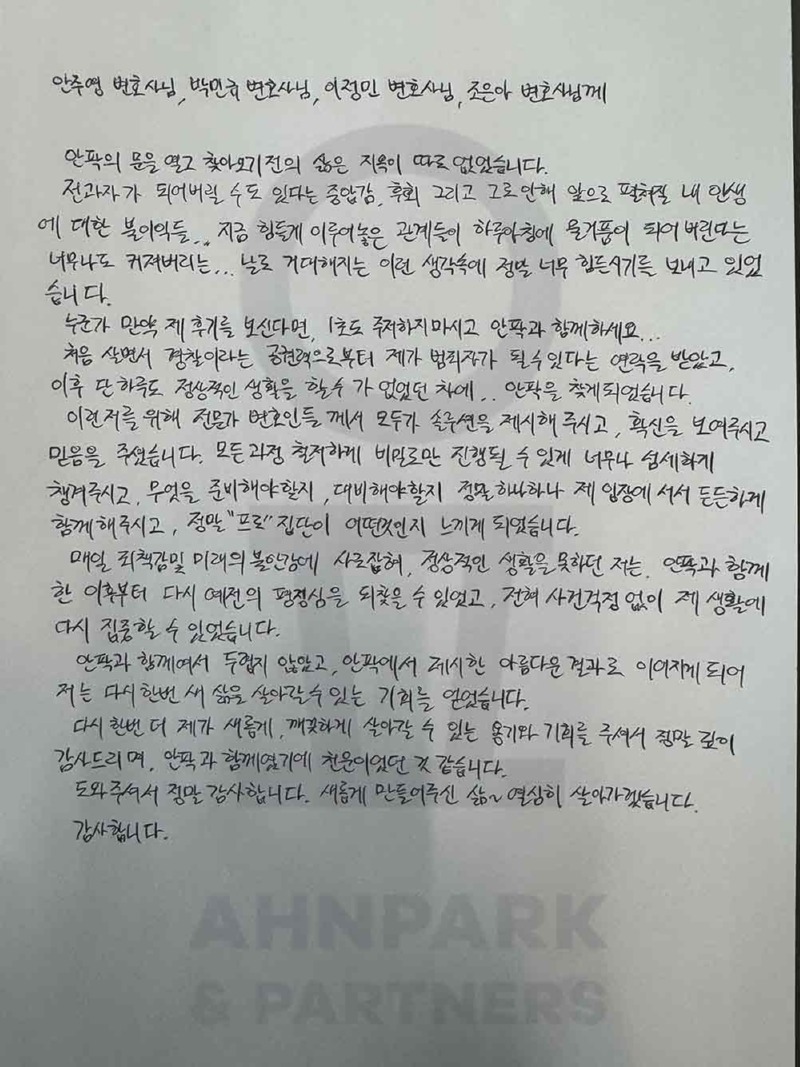 안주영 변호사님, 박민규 변호사님, 이정민 변호사님, 조은아 변호사님께
안팍의 문을 열고 찾아오기전의 삶은 지옥이 따로 없었습니다.
전과자가 되어버릴 수도 있다는 중압감, 후회 그리고 그로인해 앞으로 펼쳐질 내 인생
에 대한 불이익들.. 지금 힘들게 이루어놓은 관계들이 하루아침에 물거품이 되어버린다는
너무나도 커져버리는... 날로 거대해지는 이런 생각속에 정말 너무 힘든시기를 보내고 있었
습니다.
누군가 만약 제 후기를 보신다면, 1초도 주저하지마시고 안팍과 함께하세요...
처음 살면서 경찰이라는 공권력으로부터 제가 범죄자가 될수있다는 연락을 받았고,
이후 단 하루도 정상적인 생활을 할수가 없었던 차에.. 안팍을 찾게되었습니다.
이런저를 위해 전문가 변호인들께서 모두가 솔루션을 제시해주시고, 확신을 보여주시고
믿음을 주셨습니다. 모든과정 철저하게 비밀로만 진행될 수 있게 너무나 섬세하게
챙겨주시고, 무엇을 준비해야할지, 대비해야할지 정말하나하나 제 입장에 서서 든든하게
함께해주시고, 정말 "프로" 집단이 어떤것인지 느끼게 되었습니다.
매일 죄책감및 미래의 불안감에 사로잡혀, 정상적인 생활을못하던 저는, 안팍과 함께
한 이후부터 다시 예전의 평정심을 되찾을 수 있었고, 전혀 사건걱정 없이 제 생활에
다시 집중할 수 있었습니다.
안팍과 함께여서 두렵지 않았고, 안팍에서 제시한 아름다운결과로 이어지게 되어
저는 다시한번 새 삶을 살아갈수있는 기회를 얻었습니다.
다시 한번 더 제가 새롭게, 깨끗하게 살아갈 수 있는 용기와 기회를 주셔서 정말 깊이
감사드리며, 안팍과 함께였기에 천운이었던 것 같습니다.
도와주셔서 정말감사합니다. 새롭게 만들어주신 삶~ 열심히 살아가겠습니다.
감사합니다.
AHNPARK
& PARTNERS